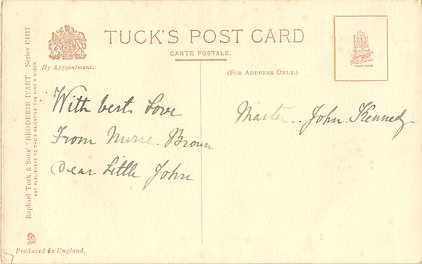 TUCK'S POST CARD
CARTE POSTALE.
(FOR ADDRESS ONLY.)
By Appointment.
Raphael Tuck & Sons' "BRODERIE D'ART" Series C1417
AND PUBLISHERS TO THEIR MAJESTIES THE KING & QUEEN.
With best Love
From Nurse Brown
Dear Little John
Master. John Kennedy
Produced in England.